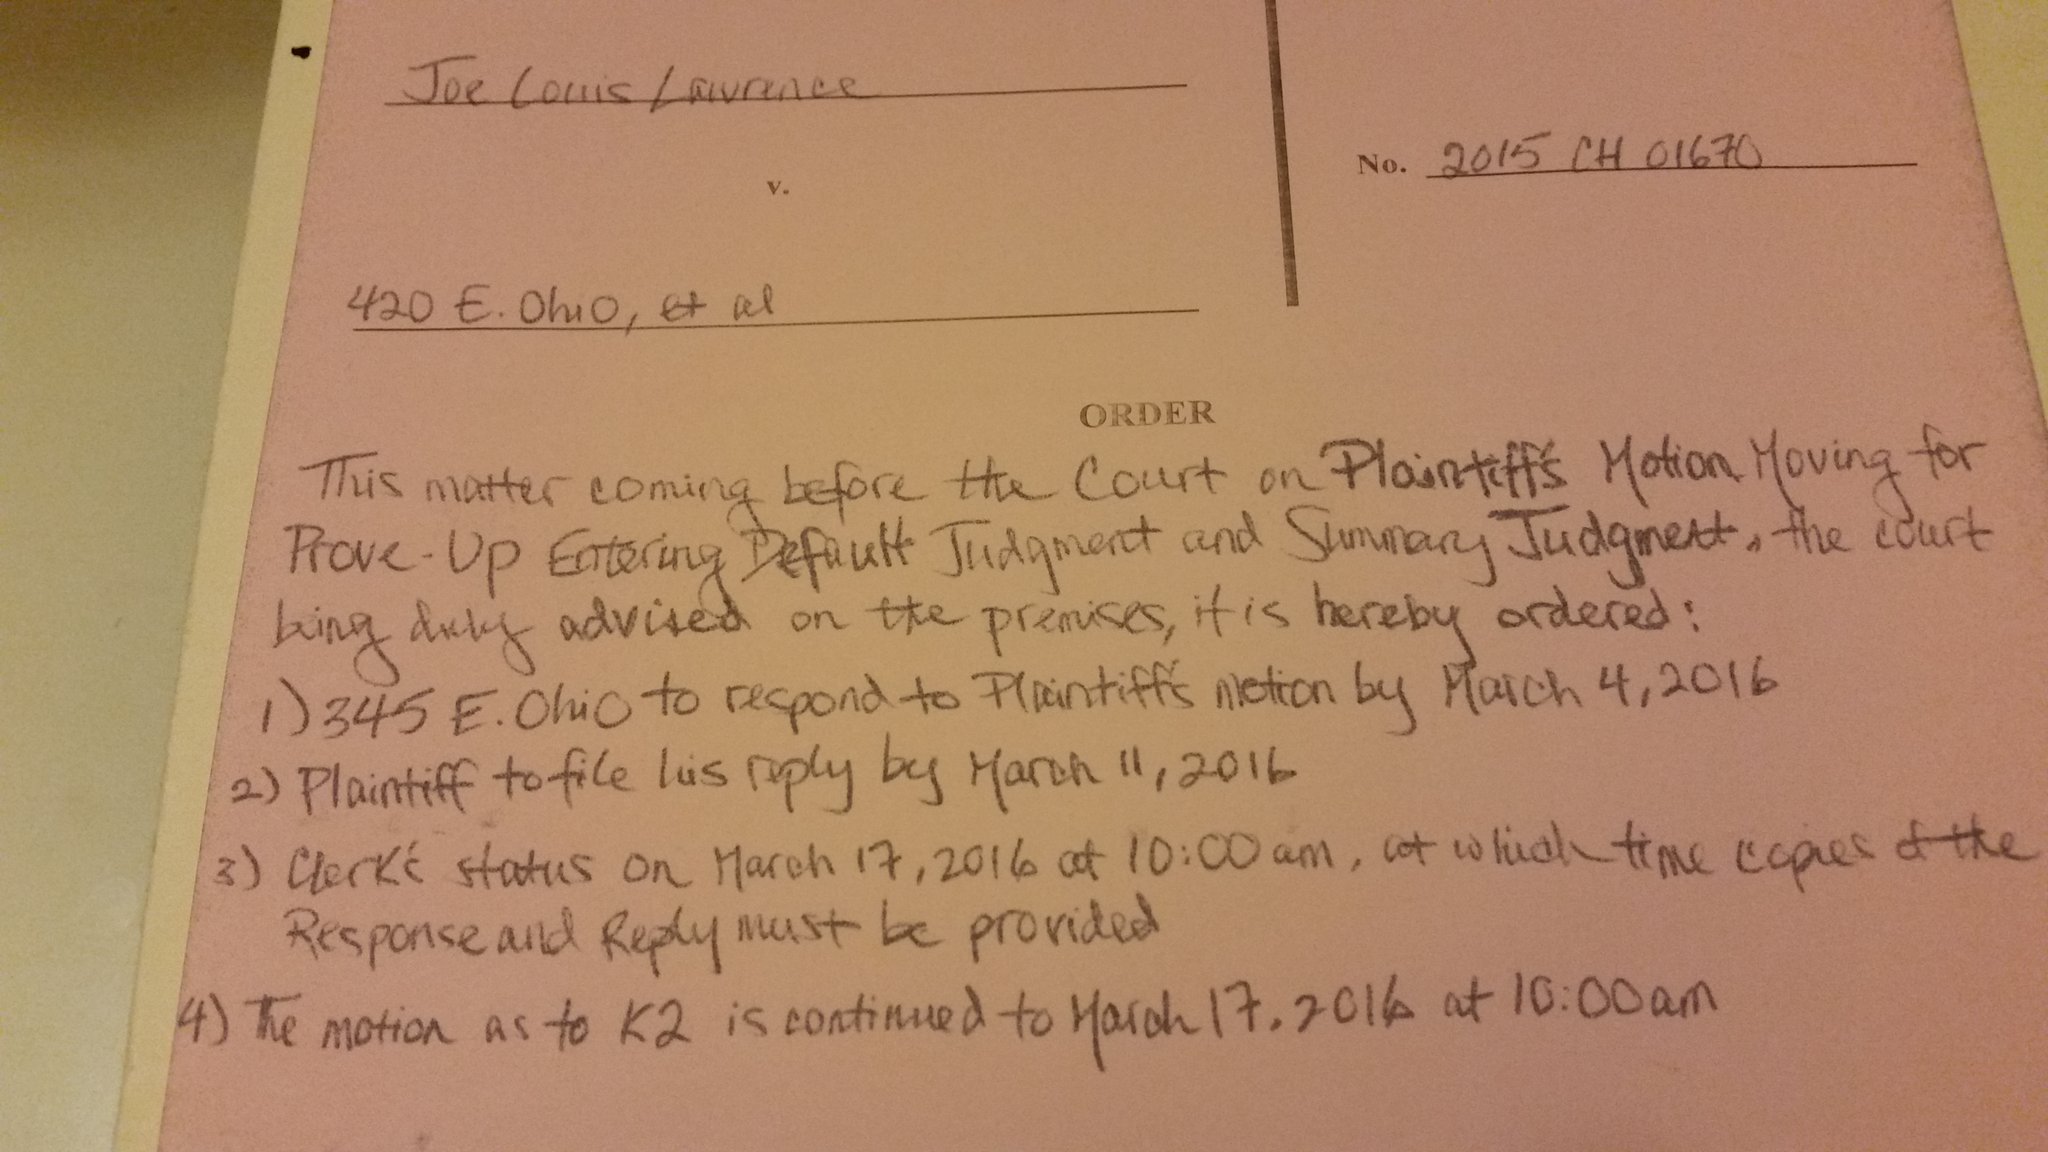 Joe Louis Lawrence
v.
No. 2015 CH 01670
420 E. Ohio, et al
ORDER
This matter coming before the Court on Plaintiff's Motion Moving for
Prove-Up Entering Default Judgment and Summary Judgment, the court
being duly advised on the premises, it is hereby ordered:
1) 345 E. Ohio to respond to Plaintiff's motion by March 4, 2016
2) Plaintiff to file his reply by March 11, 2016
3) Clerk's status on March 17, 2016 at 10:00 am, at which time copies of the
Response and Reply must be provided
4) The motion as to K2 is continued to March 17, 2016 at 10:00 am